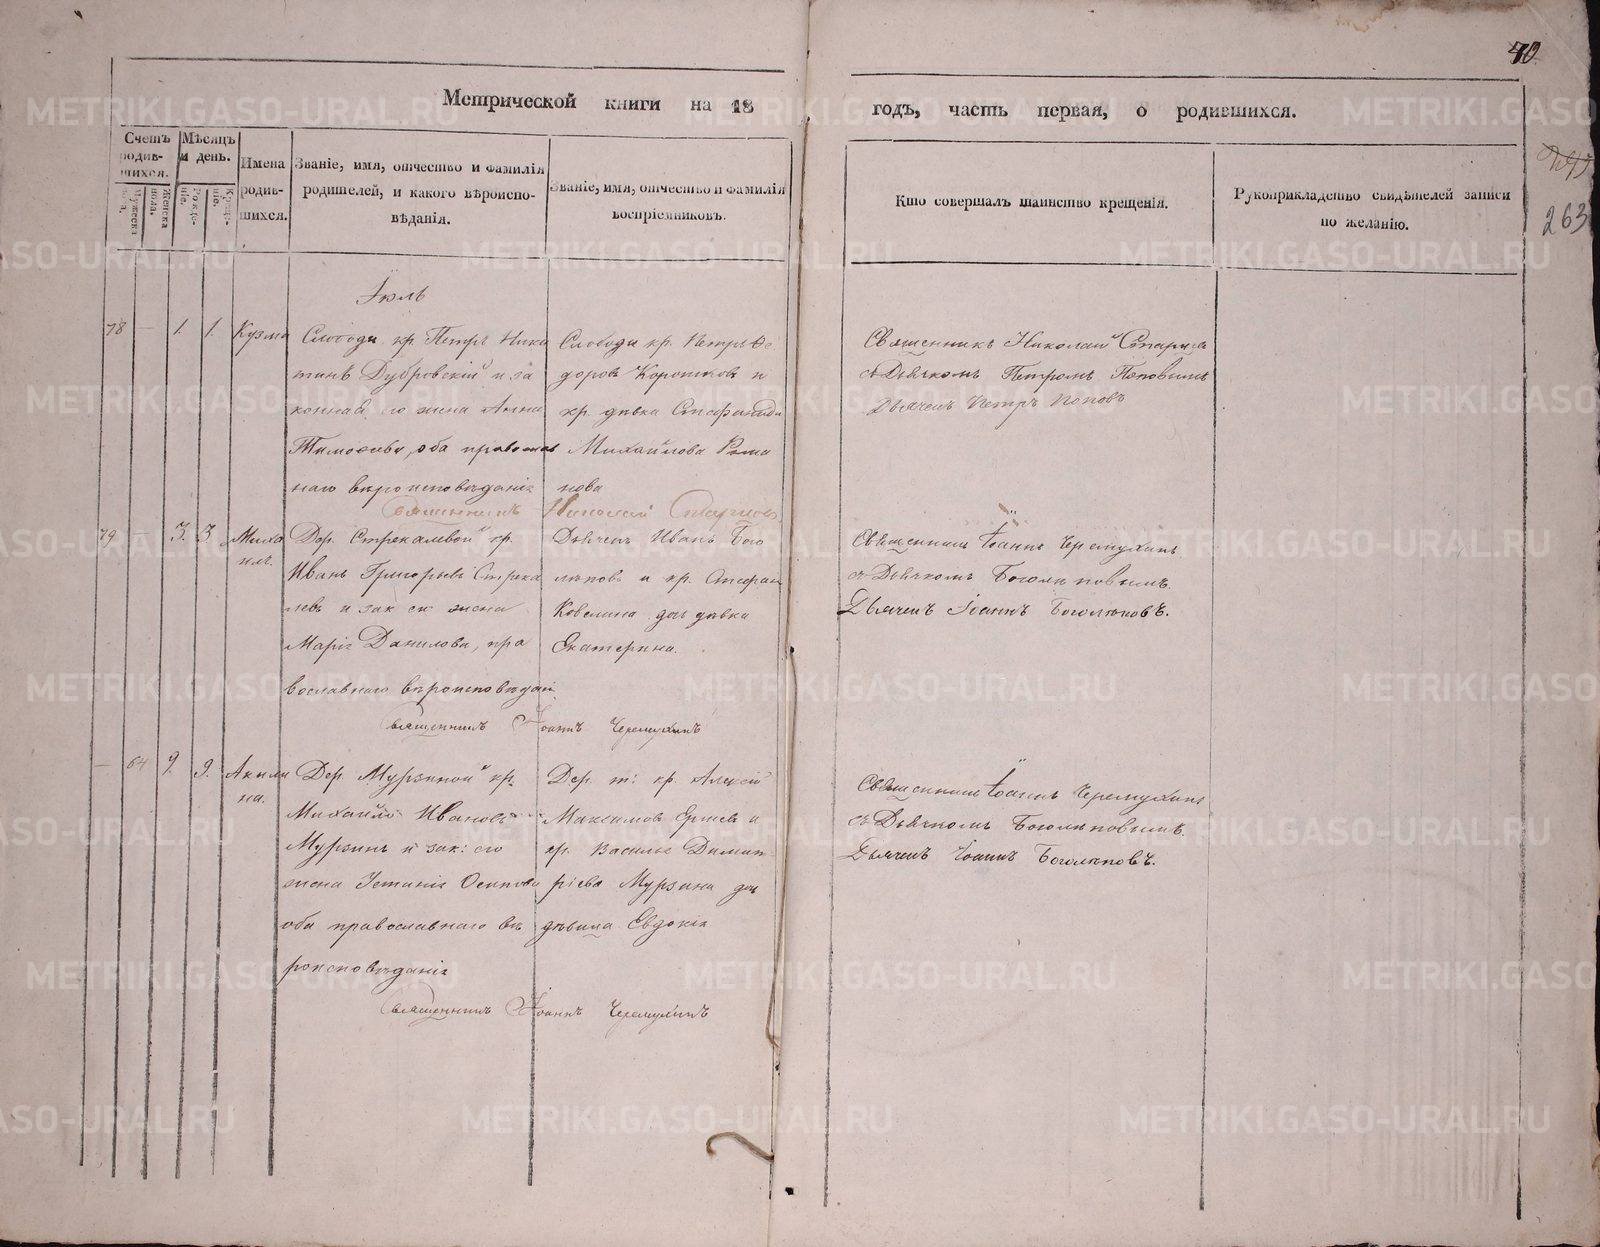 40
Метрической книги на 18 годъ, часть первая, о родившихся.
263
Счетъ родив-шихся.
Мужеска пола.
Женска пола.
Мѣсяцъ и день.
Рожде-ніе.
Креще-ніе.
Имена родив-шихся.
Званіе, имя, отчество и фамилія
родителей, и какого вѣроиспо-
вѣданія.
Званіе, имя, отчество и фамилія
воспріемниковъ.
Кто совершалъ таинство крещенія.
Рукоприкладство свидѣтелей записи
по желанію.
Іюль
78 — 1. 1. Кузма
Слободы кр. Петръ Ники
тинъ Дубровскій и за
конная его жена Анна
Тимофѣева, оба православ
наго вѣроисповѣданія
Слободы кр. Петръ Ѳе
доровъ Коротковъ и
кр. дѣвка Стефанида
Михайлова Рома
нова
Священникъ Николай
Священникъ Николай
съ Дьячкомъ Петромъ Поповымъ
Дьячекъ Петръ Поповъ
79 — 3. 3 Миха
илъ.
Дер. Стрекалевой кр.
Иванъ Григорьевъ Стрека
левъ и зак. ег. жена
Марія Данилова, пра
вославнаго вѣроисповѣданія
Дьячекъ Иванъ Бого
лѣповъ и кр. Стефан
дочь дѣвка
Екатерина.
Священникъ Іоаннъ Черемухинъ
Священникъ Іоаннъ Черемухинъ
съ Дьячкомъ Боголѣповымъ.
Дьячекъ Іоаннъ Боголѣповъ.
— 64 9. 9. Акили
на.
Дер. Мурзиной кр.
Михайло Ивановъ
Мурзинъ и зак: его
жена Устинія Осипова
оба православнаго вѣ
роисповѣданія
Дер. т: кр. Алексій
Максимовъ и
кр. Василья Димит
ріева Мурзина дочь
дѣвица Евдокія
Священникъ Іоаннъ Черемухинъ
Священникъ Іоаннъ Черемухинъ
съ Дьячкомъ Боголѣповымъ.
Дьячекъ Іоаннъ Боголѣповъ.
METRIKI.GASO-URAL.RU